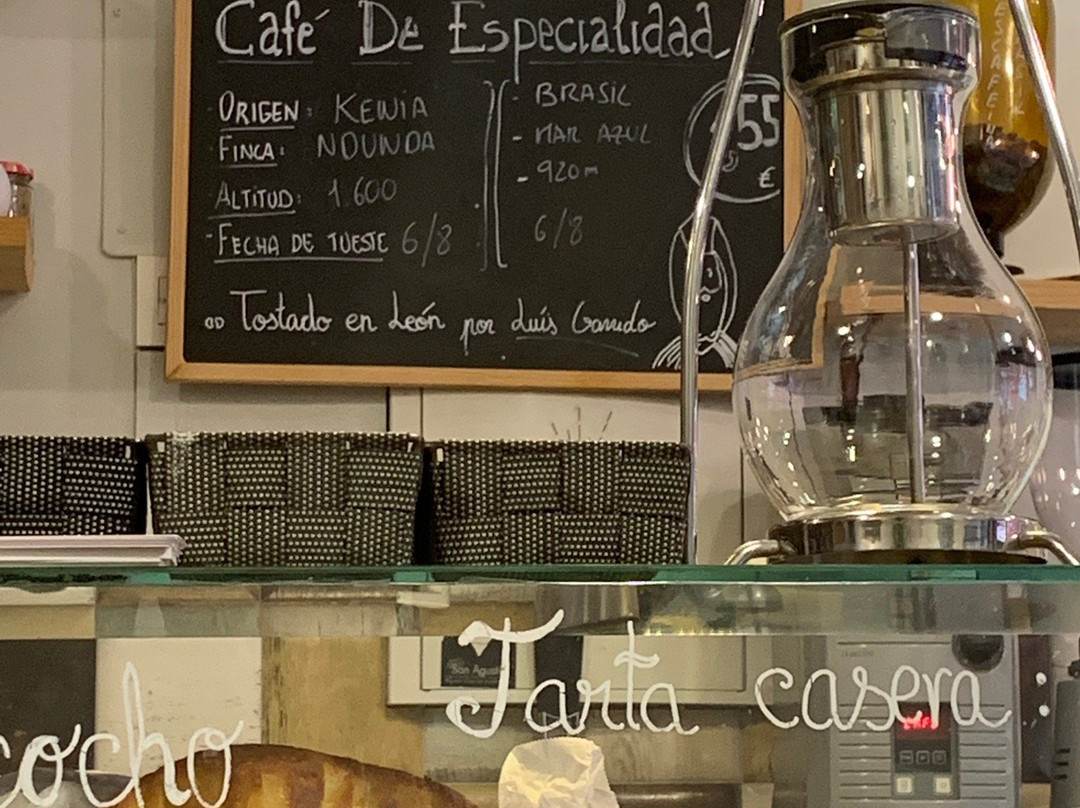 Café De Especialidad
- ORIGEN: KEWIA
- FINCA: NDUNDA
- ALTITUD: 1.600
- FECHA DE TUESTE 6/8
- BRASIL
- MAR AZUL
- 920m
6/8
55
€
Tostado en León por Luis Garrudo
San Agustí
Tarta casera
cocho